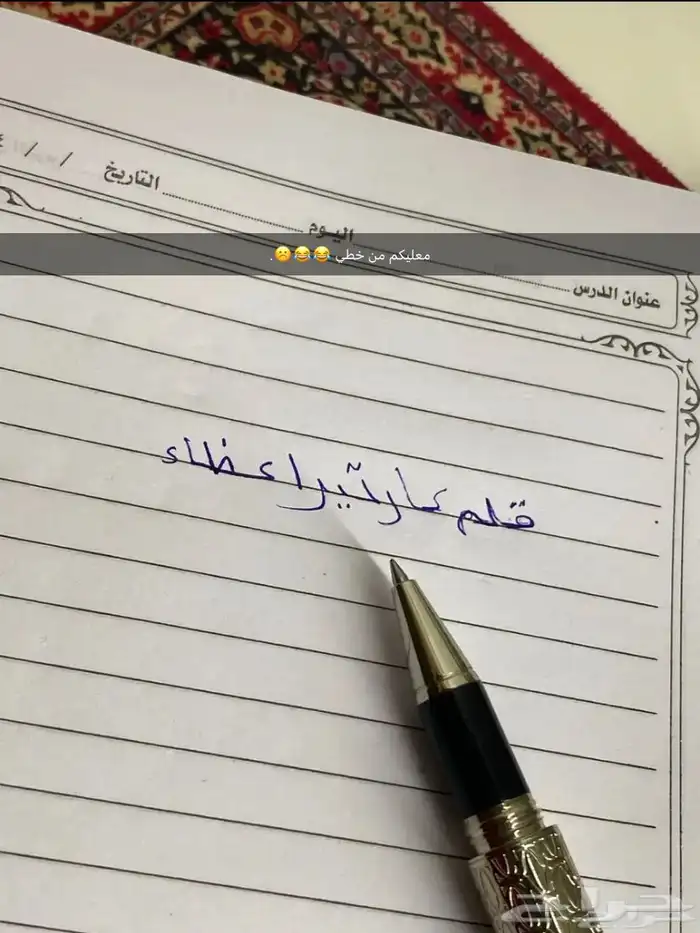 التاريخ / /
اليوم
معليكم من خطي 😂😂☹️.
عنوان الدرس
قلم كارتير اعطاء
حراج